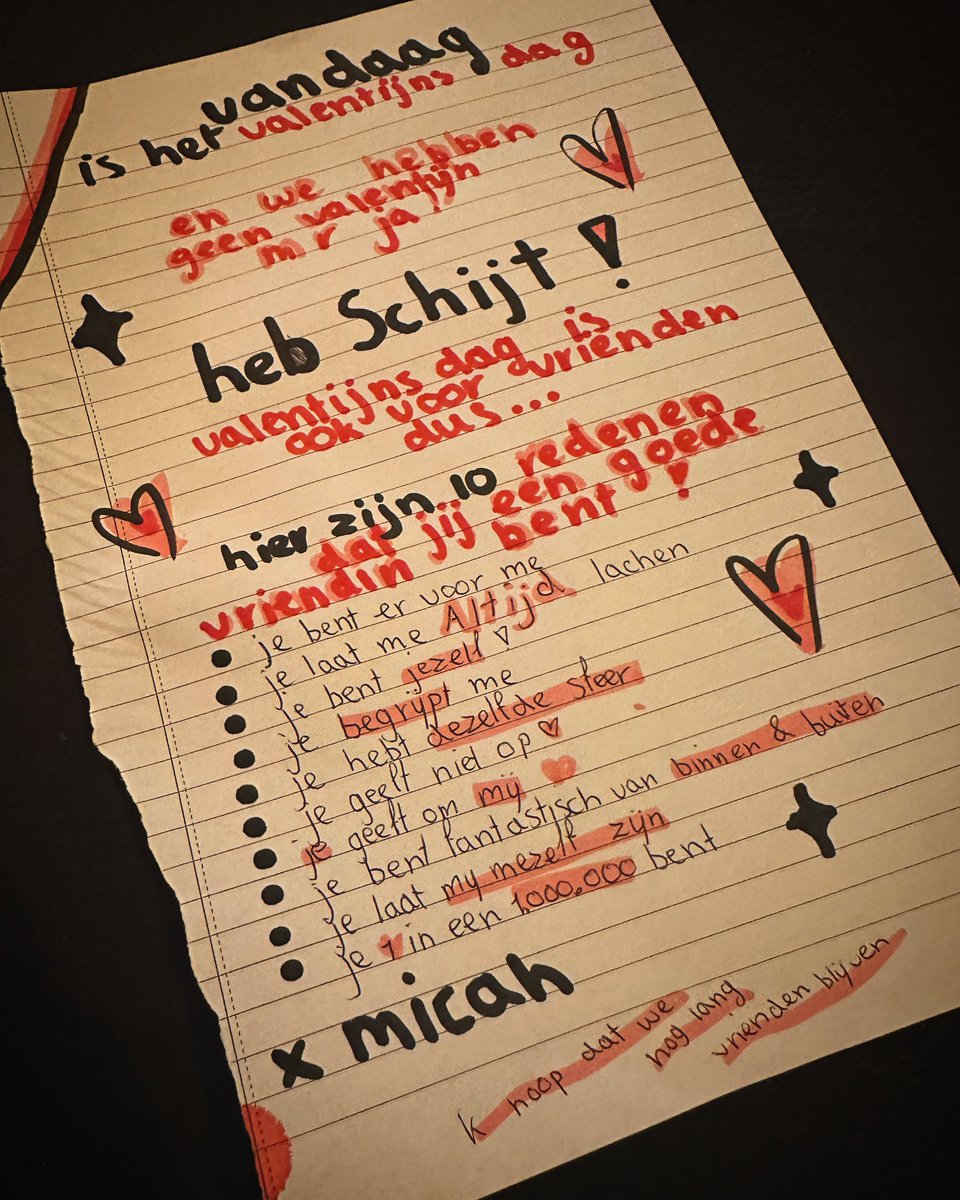 vandaag
is het valentijns dag
en we hebben
geen valentijn
mr ja!
heb Schijt !
valentijns dag is
ook voor vrienden
dus...
hier zijn 10 redenen
dat jij een goede
vriendin bent !
• je bent er voor me
• je laat me Altijd lachen
• je bent jezelf ♡
• je begrijpt me
• je hebt dezelfde sfeer
• je geeft niet op ♡
• je geeft om mij
• je bent fantastisch van binnen & buiten
• je laat mij mezelf zijn
• je 1 in een 1,000,000 bent
x micah
k hoop dat we
nog lang
vrienden blijven